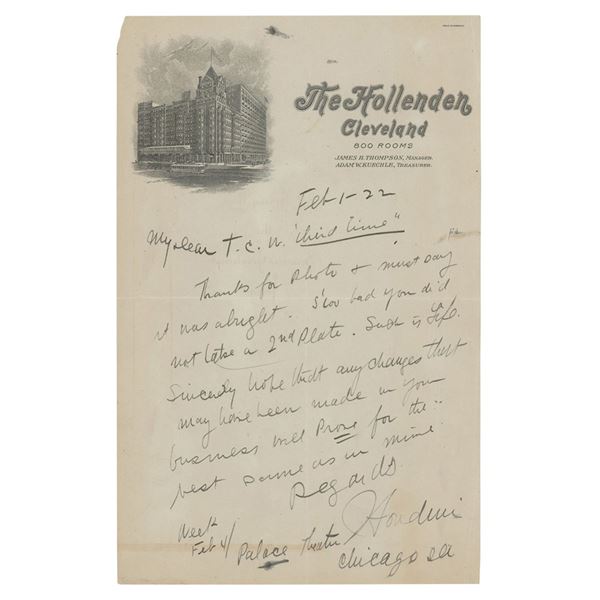 The Hollenden
Cleveland
800 ROOMS
JAMES H. THOMPSON, MANAGER.
ADAM W. KUECHLE, TREASURER.
Feb 1-22
My dear T. C. W. "third time"
Thanks for photo & must say
it was alright. S'too bad you did
not take a 2nd Plate. Such is Life.
Sincerely hope that any changes that
may have been made in your
business will Prove for the
best same as in mine.
Regards.
Houdini
Week
Feb 4/ Palace Theatre
Chicago